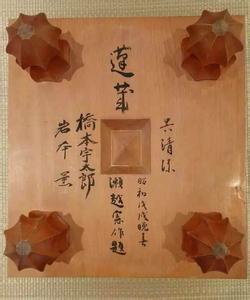 呉清源
昭和戊戌晩春
瀬越憲作題
橋本宇太郎
岩本薫